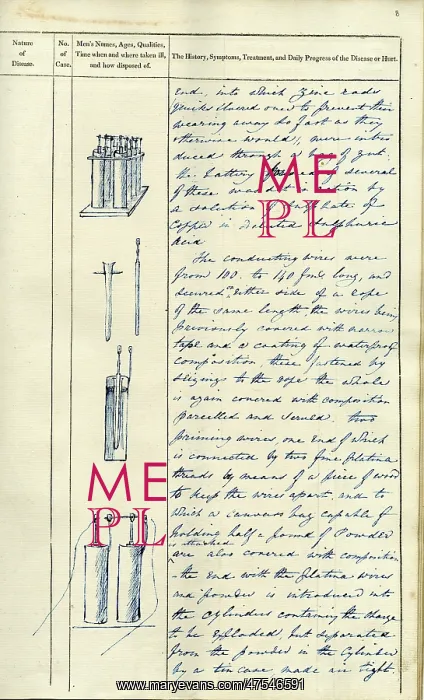 8
Nature
of
Disease.
No.
of
Case.
Men's Names, Ages, Qualities,
Time when and where taken ill,
and how disposed of.
The History, Symptoms, Treatment, and Daily Progress of the Disease or Hurt.
end, into which Zinc rods
quicksilvered over to prevent their
wearing away so fast as they
otherwise would, were intro
duced through a of gut.
the battery several
of these was in action by
a solution of Sulphate of
Copper in diluted Sulphuric
Acid
The conducting wires were
from 100 to 140 fms long, and
secured on either side of a rope
of the same length, the wires being
previously covered with narrow
tape and a coating of waterproof
composition these fastened by
seizings to the rope the whole
is again covered with composition
parcelled and served. two
priming wires, one end of which
is connected by two fine platina
threads by means of a piece of wood
to keep the wires apart, and to
which a canvass bag capable of
holding half a pound of Powder
is attached
are also covered with composition
- the end with the platina wires
and powder is introduced into
the Cylinders containing the charge
to be exploded, but separated
from the powder in the Cylinder
by a tin case made air tight.
ME
PL
ME
PL
www.maryevans.com/47546591